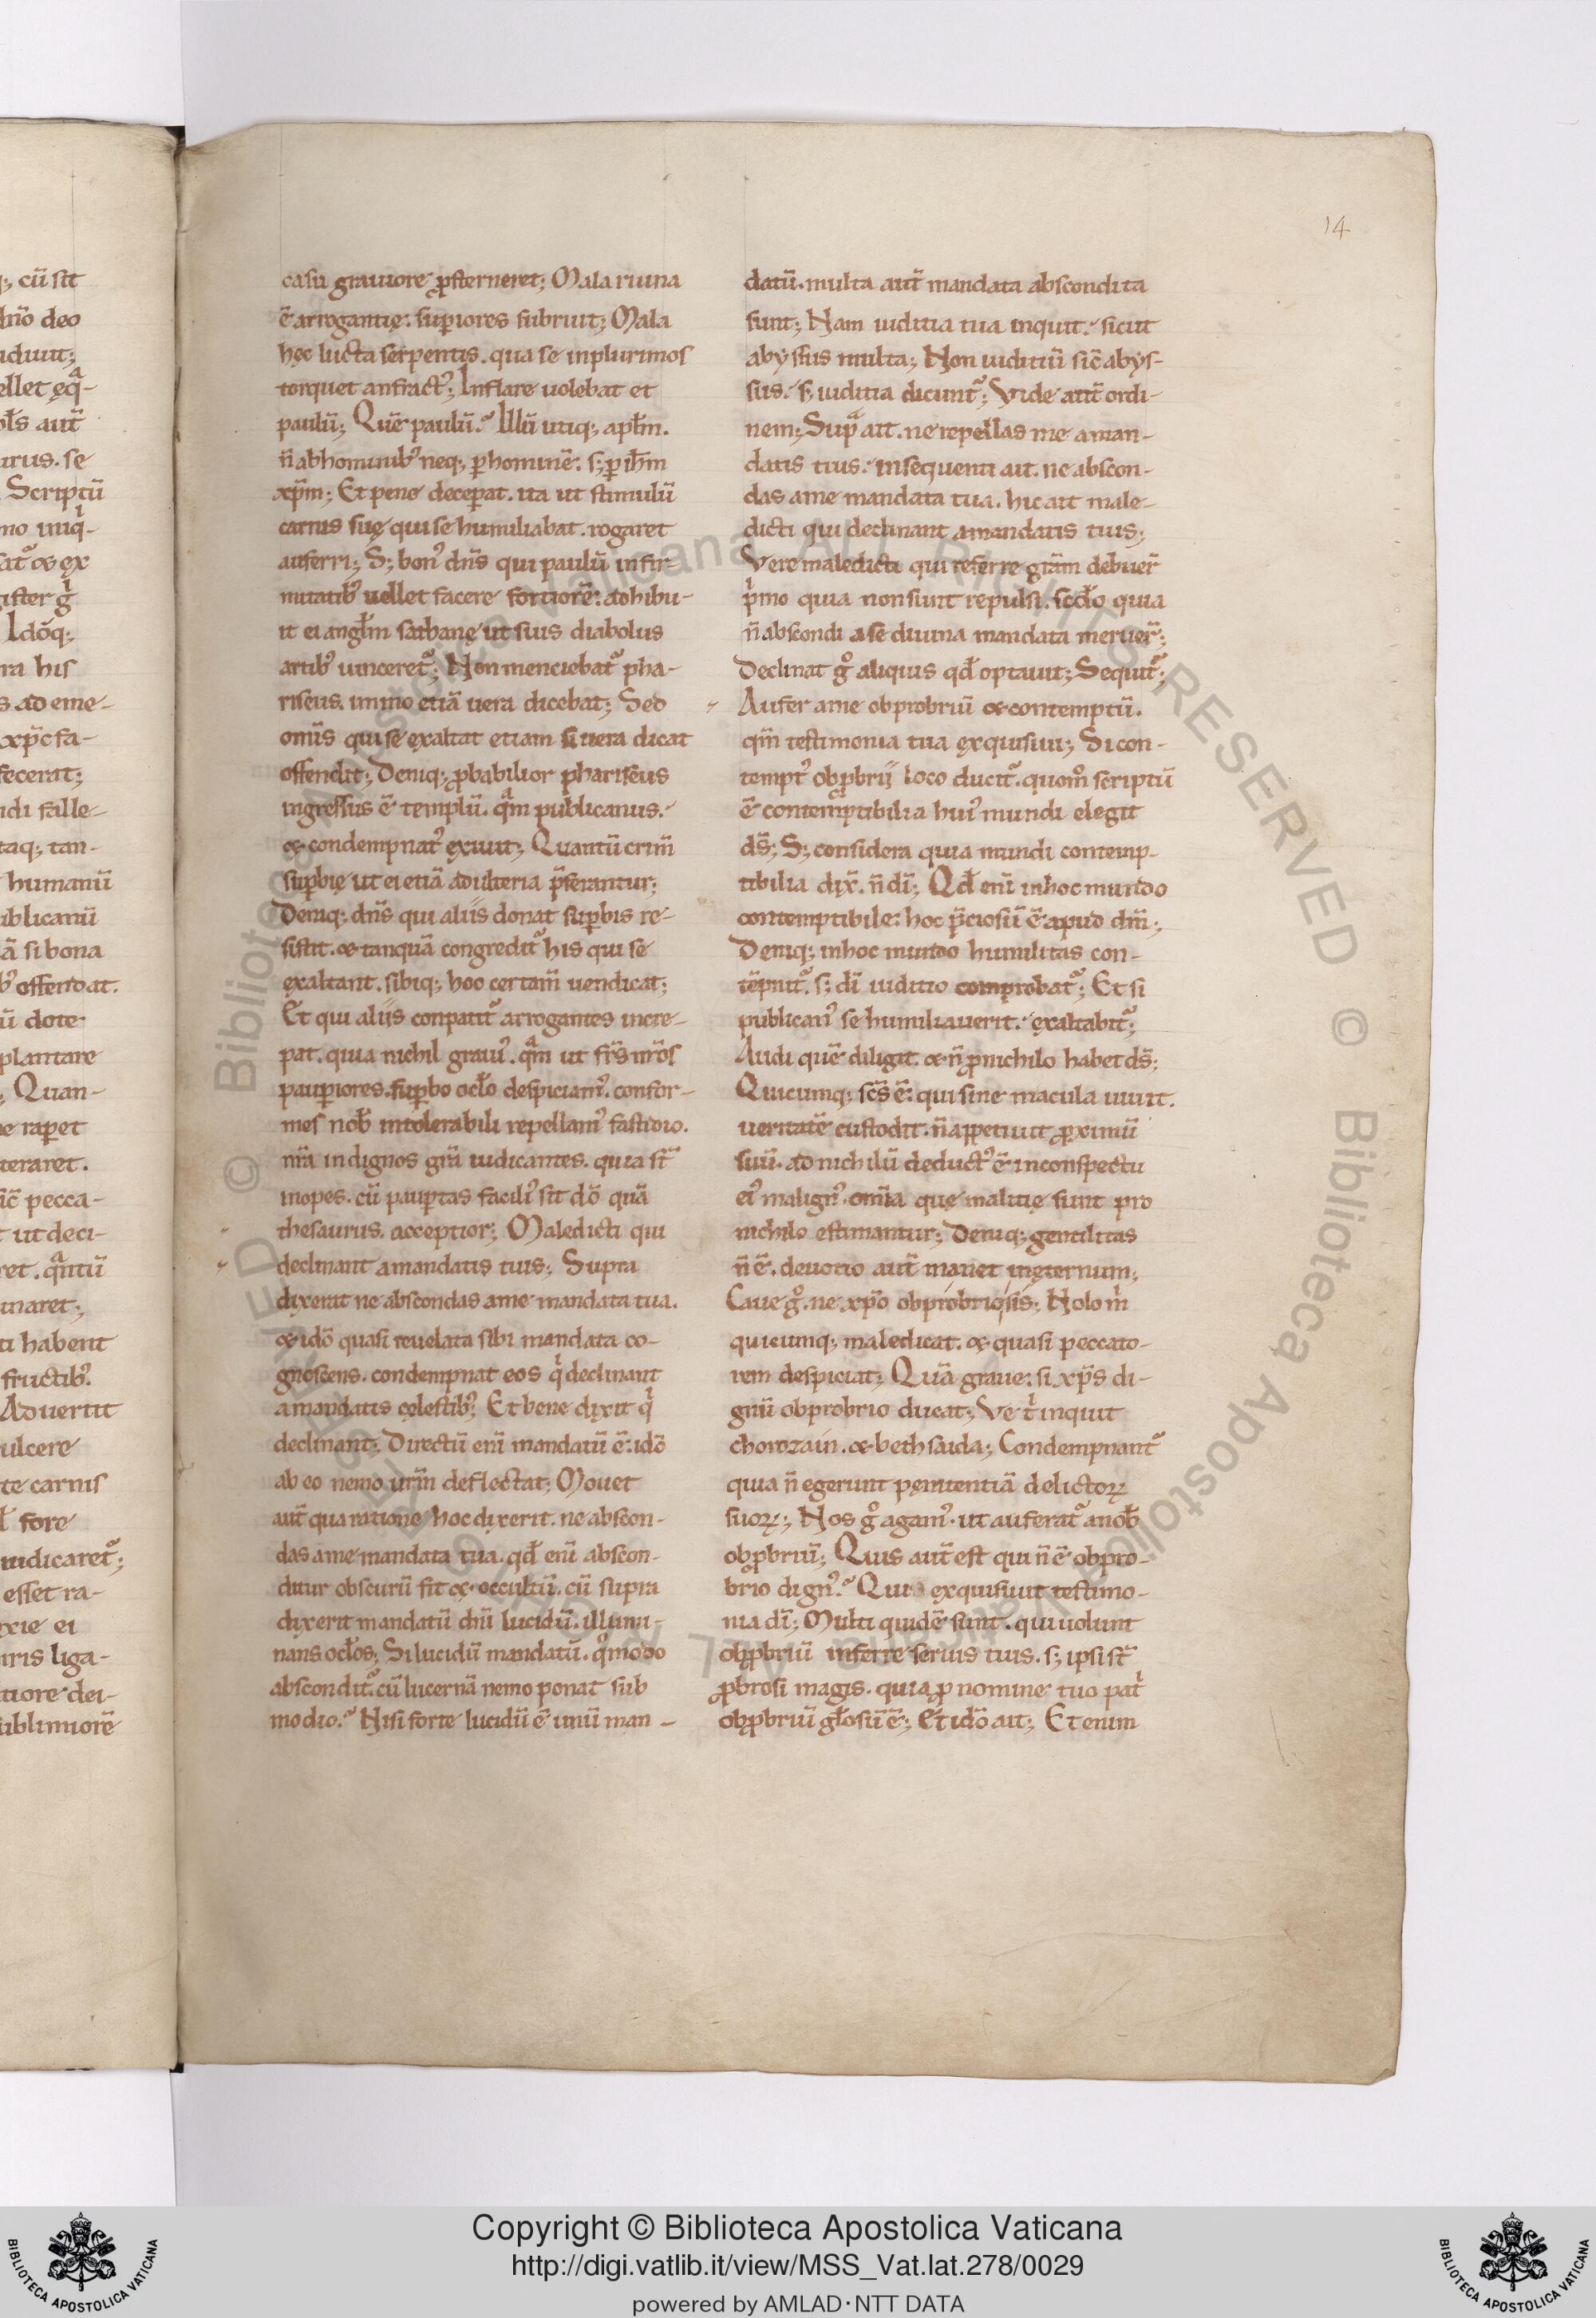 14
casu grauiore ꝓsterneret; Mala ruina
ē arrogantię. suꝑiores subruit; Mala
hęc lucta serpentis. qua se inplurimos
torquet anfract᾿; Inflare uolebat et
paulū; Quē paulū? Illū utiq; apłm.
n̄ abhominib᾿ neq; ꝑ hominē. s; ꝑ ihm̄
xp̄m; Et pene deceꝑat. ita ut stimulū
carnis suę qui se humiliabat. rogaret
auferri; S; bon᾿ dn̄s qui paulū infir-
mitatib᾿ uellet facere fortiorē: adhibu-
it ei angłm sathanę ut suis diabolus
artib᾿ uinceret᷑; Non menciebat᷑ pha-
riseus. immo etiā uera dicebat; Sed
om̄is qui se exaltat etiam si uera dicat
offendit; Deniq; ꝓbabilior phariseus
ingressus ē templū. qᵃm publicanus.
& condempnat᾿ exiuit; Quantū crim̄
suꝑbię ut ei etiā adulteria p̄ferantur;
Deniq; dn̄s qui aliis donat suꝑbis re-
sistit. & tanquā congredit᷑ his qui se
exaltant. sibiq; hoc certam̄ uendicat;
Et qui aliis conpatit᷑ arrogantes incre-
pat. quia nichil graui᾿. qᵃm ut fr̄s nr̄os
pauꝑiores. suꝑbo ocło despiciam᾿. confor-
mes nob̄ intolerabili repellam᾿ fastidio.
nr̄a indignos gr̄a iudicantes. quia st̄
inopes. cū pauꝑtas facili᾿ sit dō quā
thesaurus. acceptior; Maledicti qui
declinant amandatis tuis; Supra
dixerat ne abscondas ame mandata tua.
& idō quasi reuelata sibi mandata co-
gnoscens. condempnat eos qⁱ declinant
amandatis cęlestib᾿; Et bene dixit qⁱ
declinant; Directū eni᷑ mandatū ē: idō
ab eo nemo urm̄ deflectat; Mouet
aut̄ qua ratione hoc dixerit. ne abscon-
das ame mandata tua. qđ eni᷑ abscon-
ditur obscurū fit & occultū. cū supra
dixerit mandatū dn̄i lucidū. illumi-
nans ocłos; Si lucidū mandatū. qᵒmodo
abscondit᷑. cū lucernā nemo ponat sub
modio? Nisi forte lucidū ē unū man-
datū. multa aut̄ mandata abscondita
sunt; Nam iuditia tua inquit. sicut
abyssus multa; Non iuditiū sic̄ abys-
sus. s; iuditia dicunt᷑; Vide aut̄ ordi-
nem; Supᵃ ait. ne repellas me aman-
datis tuis. insequenti ait. ne abscon-
das ame mandata tua. hic ait male-
dicti qui declinant amandatis tuis;
Vere maledicti qui referre gr̄am debuer̄
pⁱmo quia non sunt repulsi. scđo quia
n̄ abscondi ase diuina mandata meruer̄;
Declinat gᵒ aliquis qđ optauit; Sequit᷑;
Aufer ame obprobriū & contemptū.
qm̄ testimonia tua exquisiui; Si con-
tempt᾿ obꝓbrii loco ducit᷑. quomᵒ scriptū
ē contemptibilia hui᾿ mundi elegit
ds̄; S; considera quia mundi contemp-
tibilia dix̄. n̄ dī; Qđ eni᷑ inhoc mundo
contemptibile: hoc p̄ciosū ē apud dm̄;
Deniq; inhoc mundo humilitas con-
tēpnit᷑. s; dī iuditio comprobat᷑; Et si
publican᾿ se humiliauerit. exaltabit᷑;
Audi quē diligit. & n̄ ꝓ nichilo habet ds̄;
Quicumq; sc̄s ē: qui sine macula uiuit.
ueritatē custodit. n̄ appetiuit ꝓximū
suū. ad nichilū deduct᾿ ē inconspectu
ei᾿ malign᾿. om̄ia que malitię sunt pro
nichilo estimantur; Deniq; gentilitas
n̄ ē. deuotio aut̄ manet inęternum;
Caue gᵒ. ne xp̄o obprobriosis; Nolo mⁱ
quicumq; maledicat. & quasi peccato-
rem despiciat; Quā graue: si xp̄s di-
gnū obprobrio ducat; Ve tⁱ inquit
chorozain. & bethsaida; Condempnant᷑
quia n̄ egerunt pęnitentiā delictoꝝ
suoꝝ; Nos gᵒ agam᾿. ut auferat᷑ anob̄
obꝓbriū; Quis aut̄ est qui n̄ ē obpro-
brio dign᾿? Qui exquisiuit testimo-
nia dī; Multi quidē sunt. qui uolunt
obꝓbriū inferre seruis tuis. s; ipsi st̄
ꝓbrosi magis. quia ꝓ nomine tuo patⁱ
obꝓbriū głosū ē; Et idō ait; Et enim
Copyright © Biblioteca Apostolica Vaticana
http://digi.vatlib.it/view/MSS_Vat.lat.278/0029
powered by AMLAD·NTT DATA